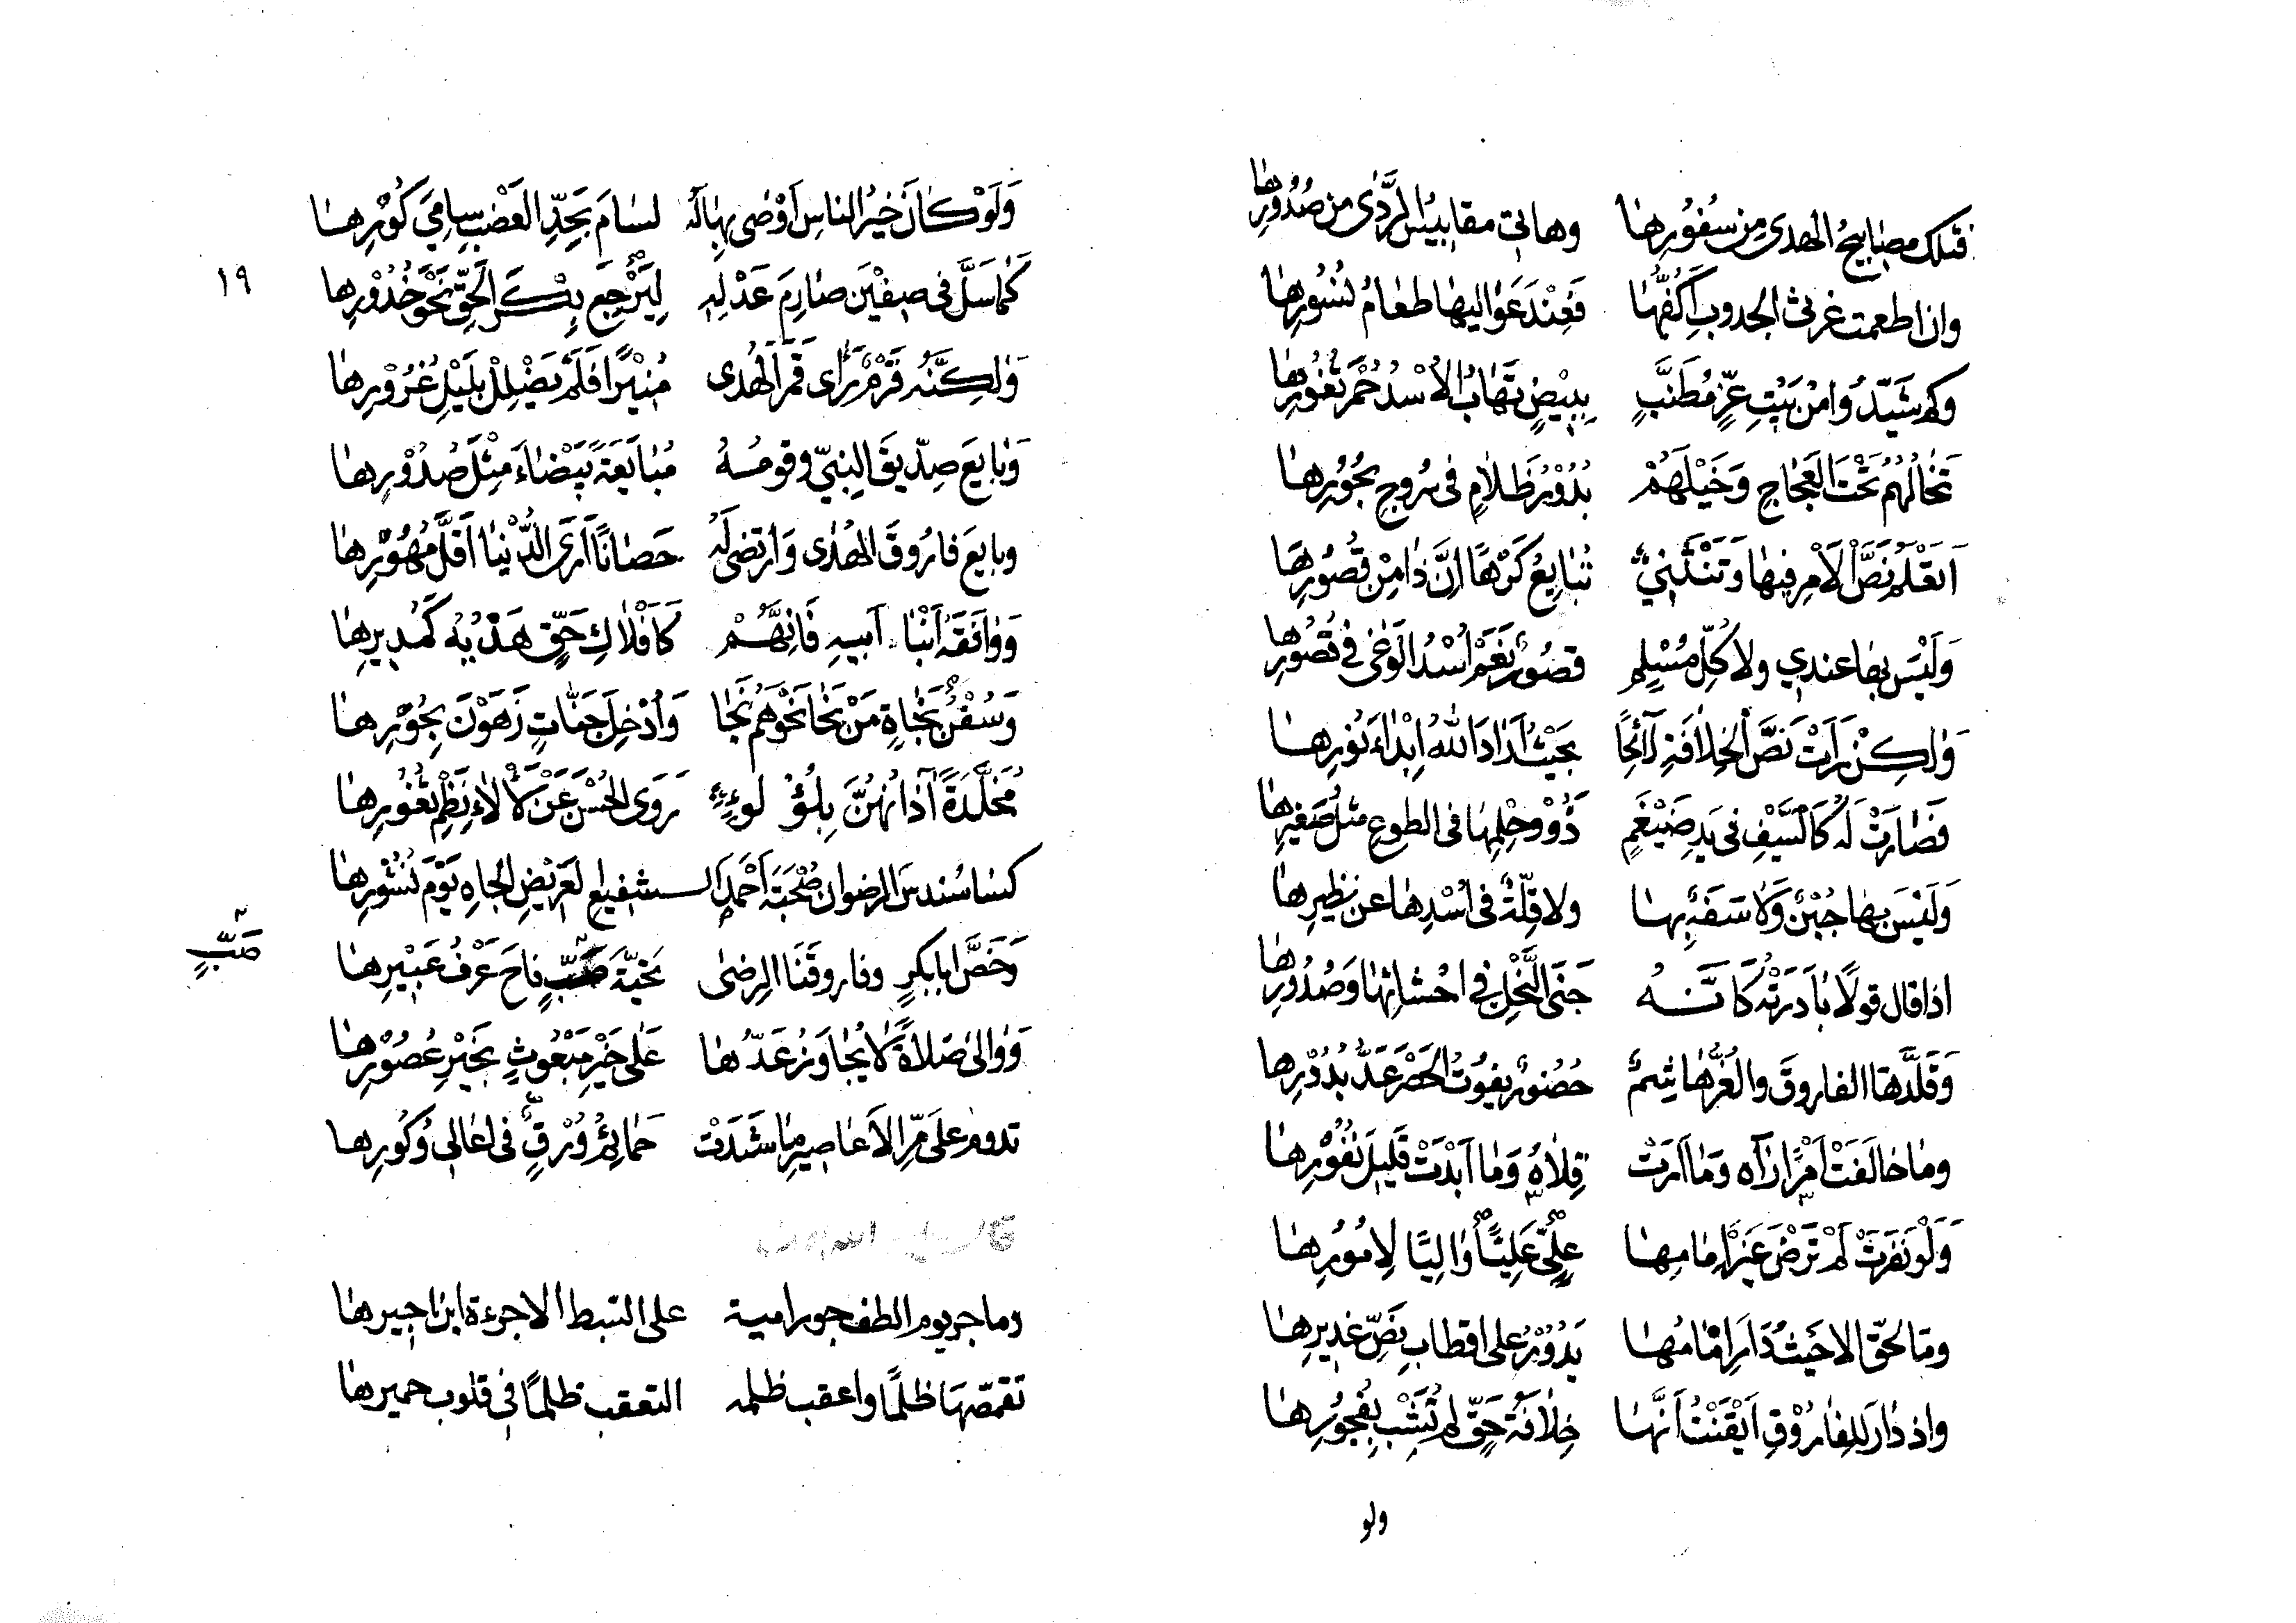 فتلك مصابيح الهدى من سفورها وهاتي مقابيس الردى من صدورها
وان اطعمت غرثى الجدوب اكفها فعند عواليها طعام نسورها
وكم شيدوا من بيت عز مطنب ببيض تهاب الاسد حمر ثغورها
تخالهم تحت العجاج وخيلهم بدور ظلام في بروج بحورها
اتعلم نص الامر فيها وتنثني تبايع كرها ان ذا من قصورها
وليس بها عندي ولا كل مسلم قصور نعم اسد الوغى في قصورها
ولكن رات نص الخلافة لائحا بحيث اراد الله ابداء نورها
فصارت له كالسيف في يد ضيغم ذوو حلمها في الطوع مثل صغيرها
وليس بها جبن ولا سفه بها ولا قلة في اسدها عن نظيرها
اذا قال قولا بادرته كانه جنى النخل في احشائها وصدورها
وقلدها الفاروق والغر هاشم حضور يفوت الحصر عد بدورها
وما خالفت امرا رآه وما ارت قلاه وما ابدت قليل نفورها
ولو نفرت لم ترض غير امامها علي عليا واليا لامورها
وما الحق الا حيث دار امامها يدور على اقطاب نص غديرها
واذ دار للفاروق ايقنت انها خلافة حق لم تشب بفجورها
ولو
ولو كان خير الناس اوصى بها له لسام بحد العضب سامي كورها
١٩
كما سل في صفين صارم عدله ليرجع بكر الحق نحو خدورها
ولكنه قرم رأى قمر الهدى منيرا فلم يضلل بليل غرورها
وبايع صديق النبي وقومه مبايعة بيضاء مثل صدورها
وبايع فاروق الهدى وارتضى له حصانا ارى الدنيا اقل مهورها
ووافقه ابناء ابيه فانهم كافلاك حق هديه كمديرها
وسفن نجاة من نحا نحوهم نجا وادخل جنات زهون بحورها
مخلدة آذانهن بلؤلؤ روى الحسن عن لألاء نظم ثغورها
كسا سندس الرضوان صحبة احمد الشفيع لعريض الجاه يوم نشورها
وخص ابابكر وفاروقنا الرضى تحية صب فاح عرف عبيرها
صب
ووالى صلاة لا يجاوز عدها على خير مبعوث بخير عصورها
تدوم على مر الاعاصير ما شدت حمائم ورق في اعالي وكورها
وما جر يوم الطف جور امية على السبط الا جرءة ابن اجيرها
تقمصها ظلما واعقب ظلمه التعقب ظلما في قلوب حميرها